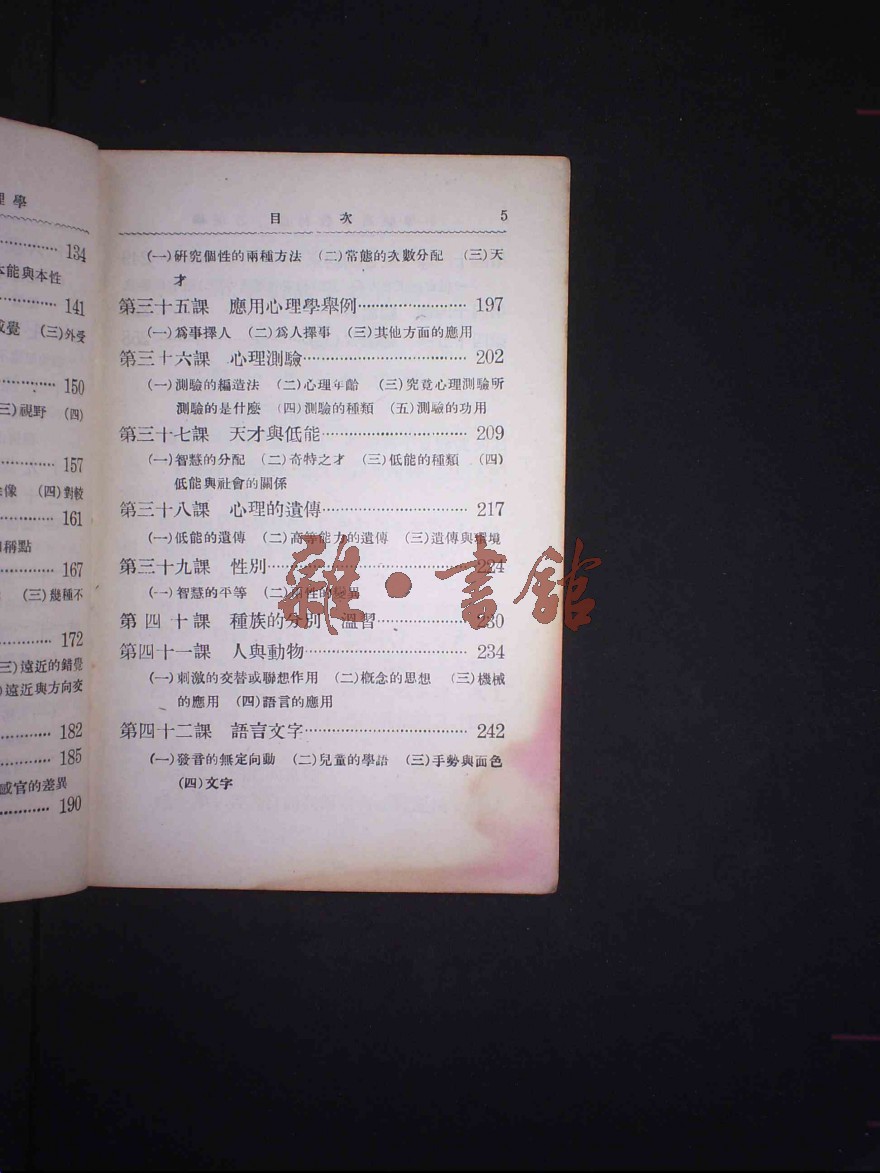 理學
134
本能與本性
141
(三)外受
150
三)視野 (四)
157
像 (四)對較
161
稱點
167
(三)幾種不
172
三)遠近的錯覺
)遠近與方向交
182
185
感官的差異
190
目 次 5
(一)研究個性的兩種方法 (二)常態的次數分配 (三)天
才
第三十五課 應用心理學舉例………………197
(一)爲事擇人 (二)爲人擇事 (三)其他方面的應用
第三十六課 心理測驗………………202
(一)測驗的編造法 (二)心理年齡 (三)究竟心理測驗所
測驗的是什麼 (四)測驗的種類 (五)測驗的功用
第三十七課 天才與低能………………209
(一)智慧的分配 (二)奇特之才 (三)低能的種類 (四)
低能與社會的關係
第三十八課 心理的遺傳………………217
(一)低能的遺傳 (二)高等能力的遺傳 (三)遺傳與環境
第三十九課 性別………………224
(一)智慧的平等 (二)兩性的變異
第四十課 種族的分別 溫習………………230
第四十一課 人與動物………………234
(一)刺激的交替或聯想作用 (二)概念的思想 (三)機械
的應用 (四)語言的應用
第四十二課 語言文字………………242
(一)發音的無定向動 (二)兒童的學語 (三)手勢與面色
(四)文字
雜·書館